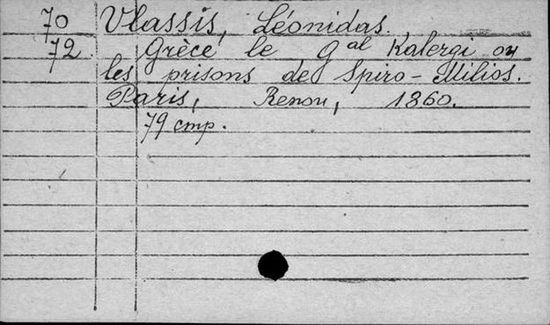 70 Vlassis, Léonidas.
72 Grèce le gal Kalergi ou
les prisons de Spiro-Milios.
Paris, Renou, 1860.
79 cmp.